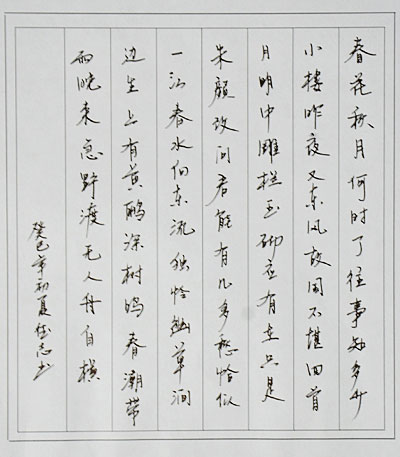 春花秋月何时了往事知多少
小楼昨夜又东风故国不堪回首
月明中雕栏玉砌应有在只是
朱颜改问君能有几多愁恰似
一江春水向东流独怜幽草涧
边生上有黄鹂深树鸣春潮带
雨晚来急野渡无人舟自横
癸巳年初夏志书